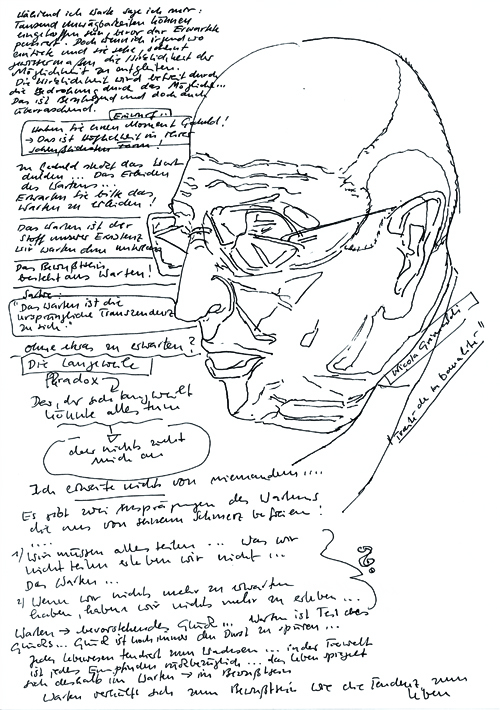 Während ich warte sage ich mir:
Tausend Unwägbarkeiten können
eingetroffen sein, bevor der Erwartete
Doch wenn ich irgendwo
eintrete und sie sehe, scheint
die Wirklichkeit der
Möglichkeit zu entgleiten.
Die Wirklichkeit wird befreit durch
die Bedrohung durch das Mögliche...
Das ist beruhigend und doch auch
überraschend.
Einwurf...
Haben Sie einen Moment Geduld!
→ Das ist Höflichkeit in ihrer
Form!
In Geduld steckt das Wort
dulden... Das Erleiden
des Wartens...
Erwarten Sie bitte das
Warten zu erleiden!
Das Warten ist der
Stoff unserer Existenz
wir warten
Das Bewußtsein
besteht aus Warten!
Sartre:
"Das Warten ist die
ursprüngliche Transzendenz
zu sich."
ohne etwas zu erwarten?
Die Langeweile
Paradox
Der, der sich langweilt
könnte alles tun
aber nichts zieht
mich an
Ich erwarte nichts von niemandem....
Es gibt zwei Ausprägungen des Wartens
die uns von seinem Schmerz befreien!
....
1) Wir müssen alles teilen... Was wir
nicht teilen erleben wir nicht...
Das Warten...
2) Wenn wir nichts mehr zu erwarten
haben, haben wir nichts mehr zu erleben...
Warten → bevorstehendes Glück... Warten ist Teil des
Glücks... Glück ist noch immer den Durst zu spüren...
Jedes Lebewesen tendiert zum Wachsen... in der Tierwelt
ist jedes Empfinden das Leben spiegelt
sich deshalb im Warten → im Bewußtsein
Warten verhält sich zum Bewußtsein wie die Tendenz zum
Leben
Nicola
"Traité de la banalité"